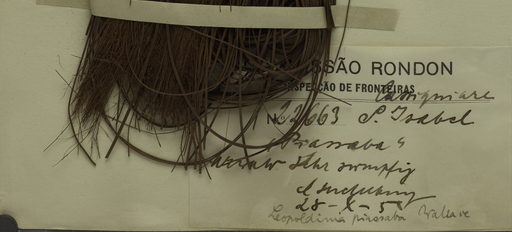 SSÃO RONDON
NSPECÇÃO DE FRONTEIRAS
Cassiquiare
N. 22663 S. Isabel
"Piassaba"
sehr sumpfig
28-X-5
Leopoldinia piassaba Wallace